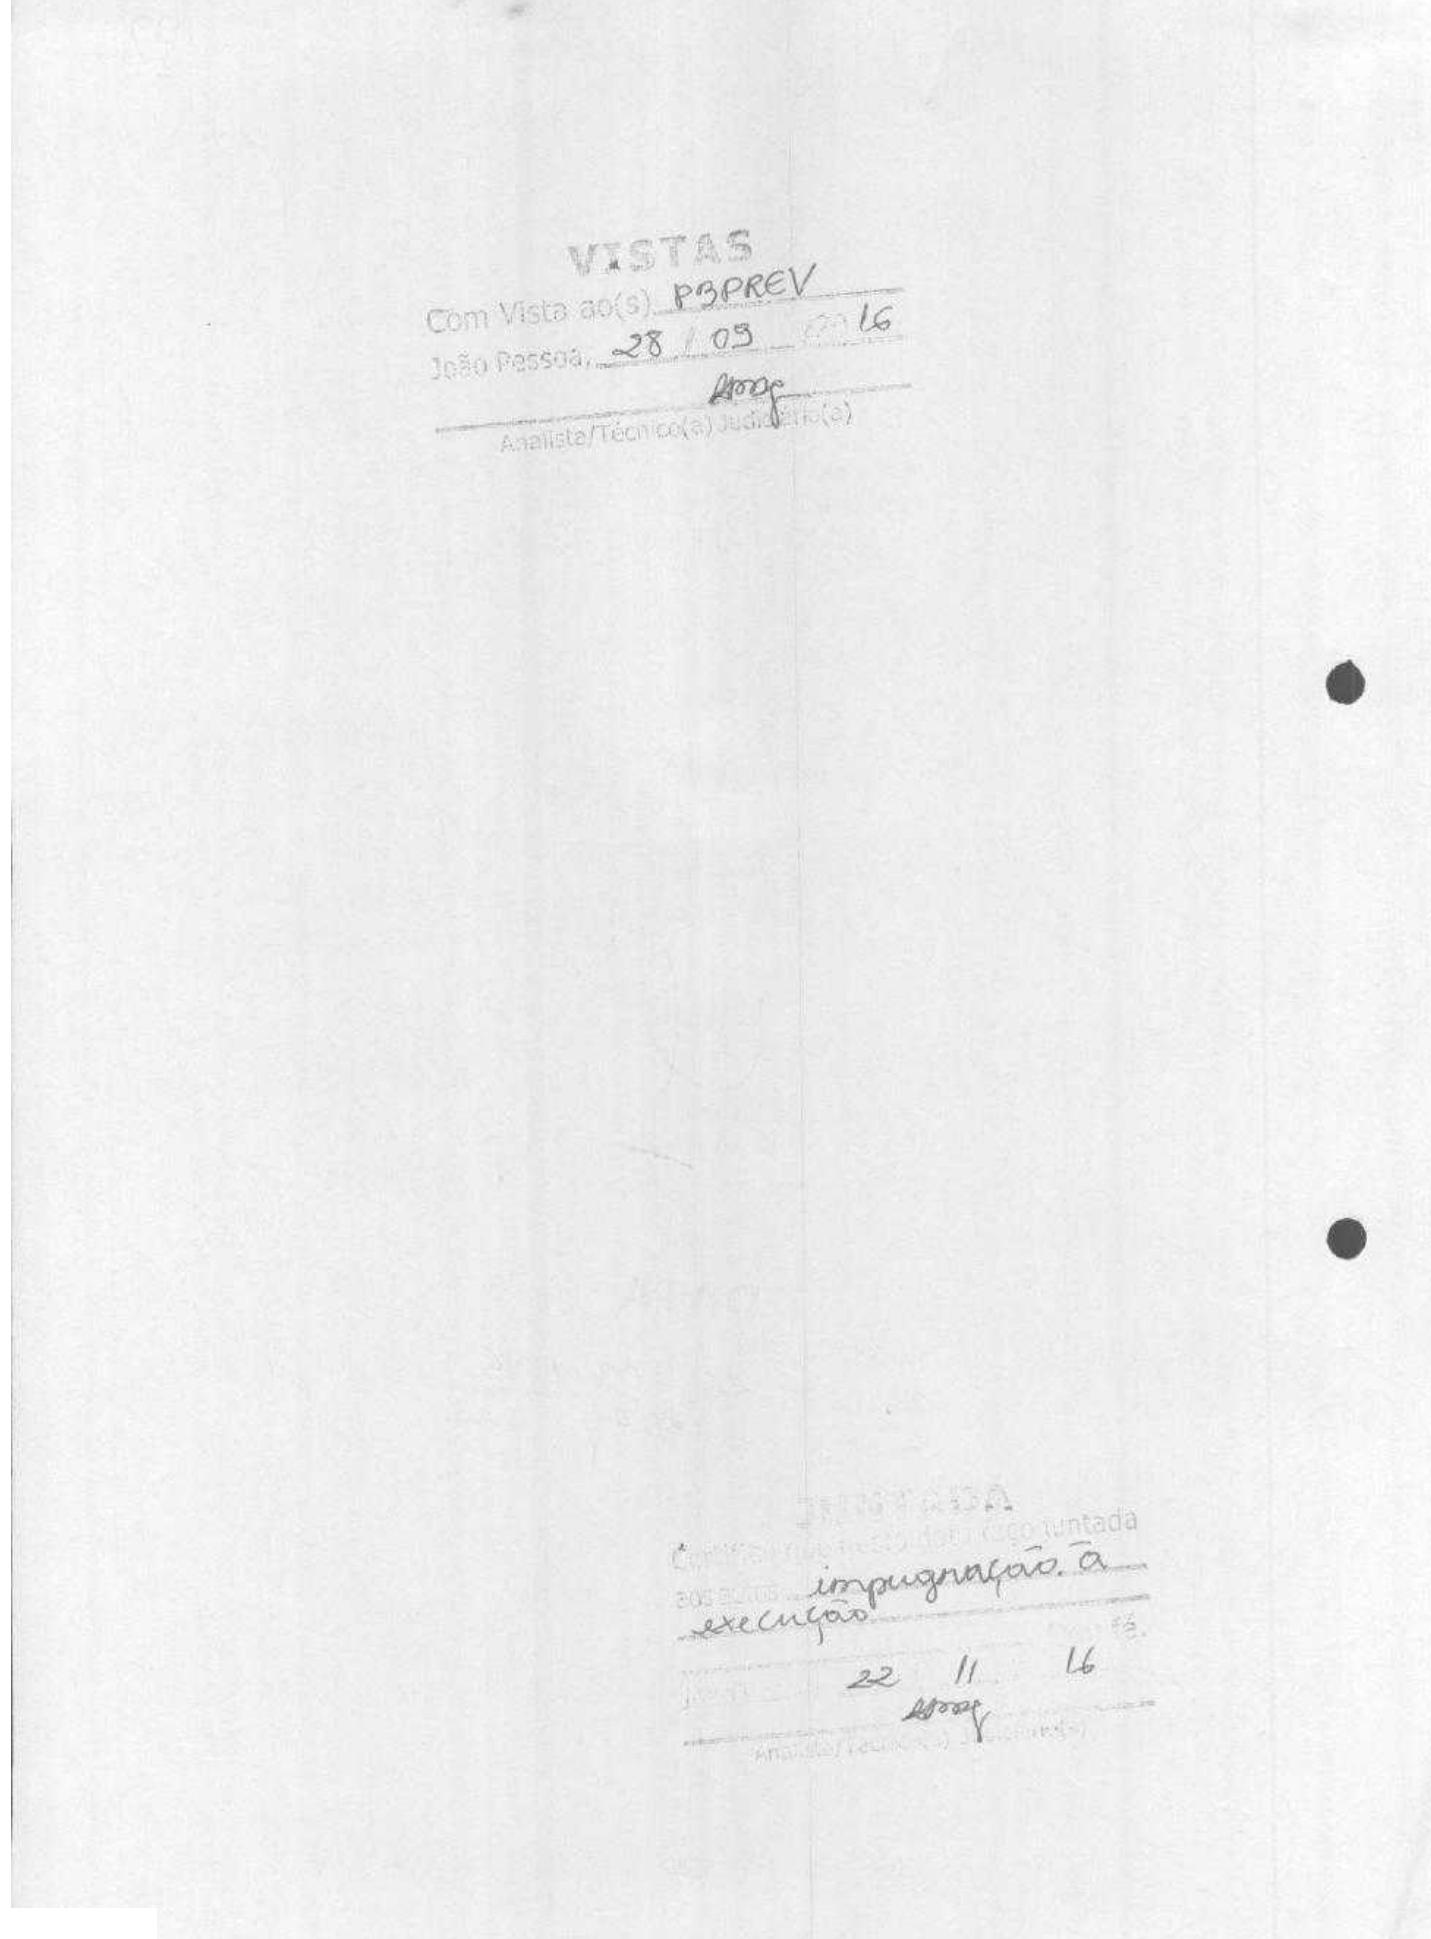 VISTAS
Com Vista ao(s) PBPREV
João Pessoa, 28 / 09 16
Analista/Técnico(a) Judiciário(a)
JUNTADA
faço juntada
aos autos impugnação à
execução
fé.
22 11 16
Analista/Técnico(a) Judiciário(a)